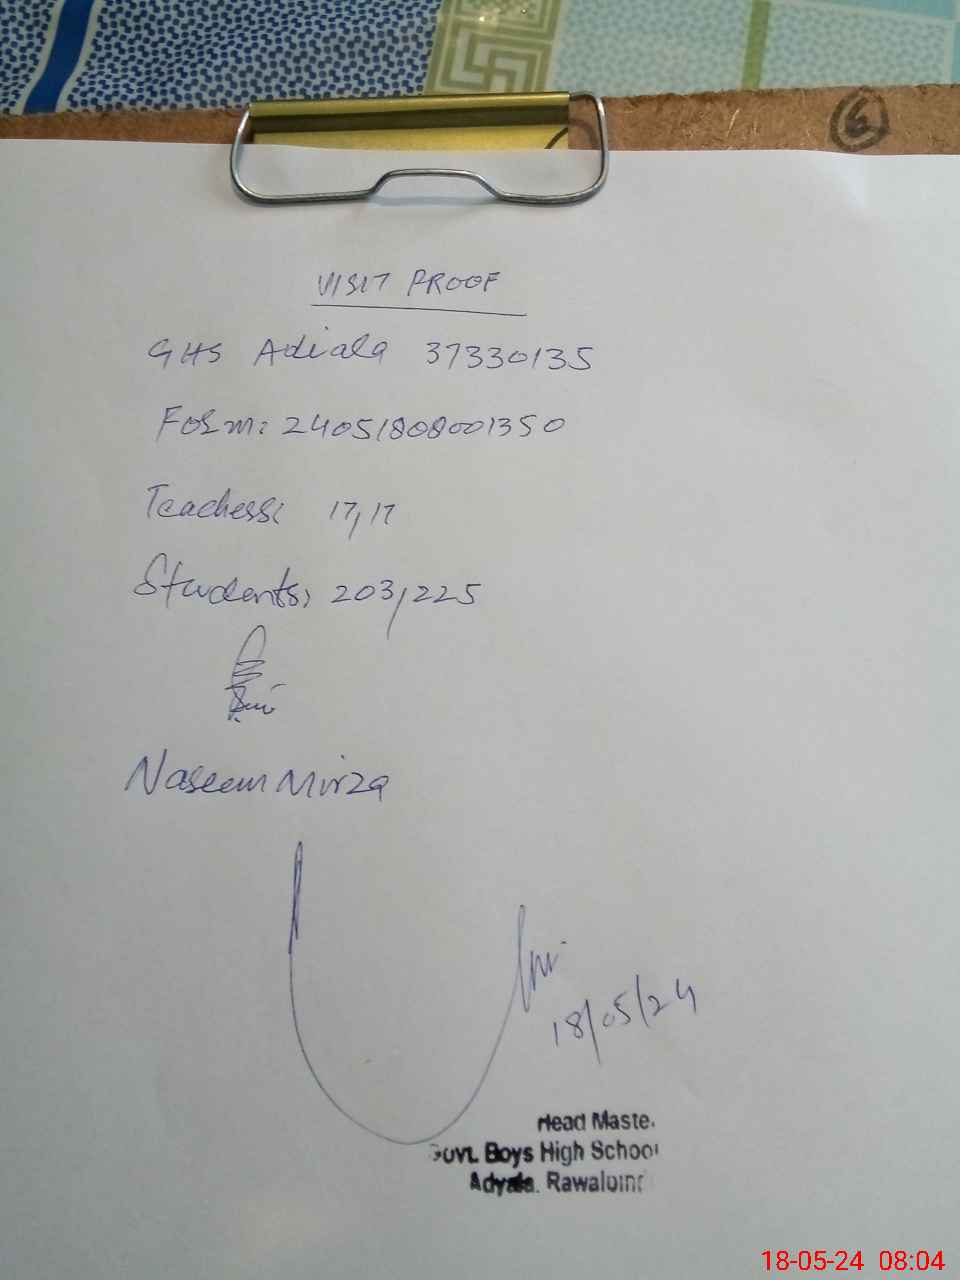 VISIT PROOF
GHS Adiala 37330135
Form: 24051808001350
Teachers: 17, 17
Students, 203, 225
Naseem Mirza
18/05/24
Head Maste.
Govt. Boys High School
Adyala. Rawalpindi
18-05-24 08:04